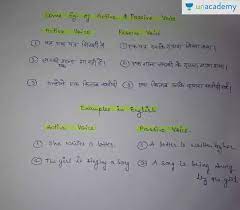 unacademy
Some Eg. of Active & Passive Voice
Active Voice Passive Voice
① वह एक पत्र लिखती है ① एक पत्र उसके द्वारा लिखा गया।
② लड़की गाना गा रही है। ② एक गाना लड़की के द्वारा गाया गया।
③ उन्होंने एक किताब खरीदी ③ एक किताब उनके द्वारा खरीदी गई।
Examples in English
Active Voice Passive Voice
① She writes a letter. ① A letter is written by her.
② The girl is singing a song ② A song is being sung
by the girl.